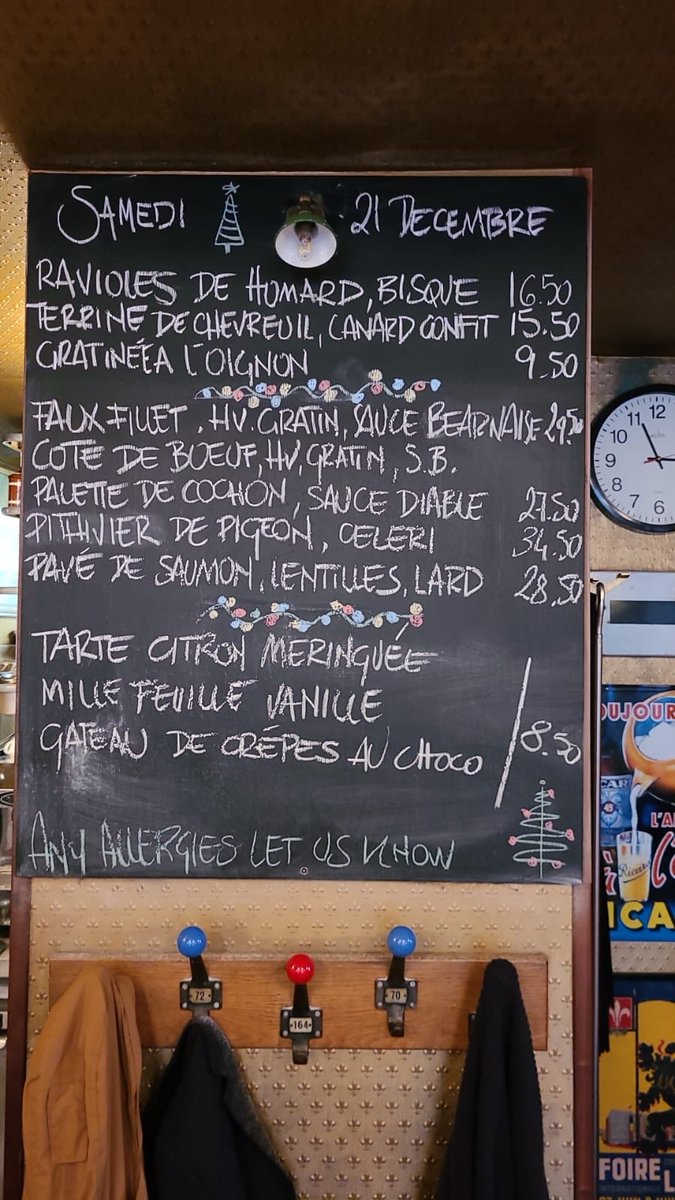 SAMEDI 21 DECEMBRE
RAVIOLES DE HOMARD, BISQUE 16.50
TERRINE DE CHEVREUIL, CANARD CONFIT 15.50
GRATINÉE A L'OIGNON 9.50
FAUX FILLET, HV. GRATIN, SAUCE BEARNAISE 29.50
COTE DE BOEUF, HV, GRATIN, S.B.
PALETTE DE COCHON, SAUCE DIABLE 27.50
PITHIVIER DE PIGEON, CELERI 34.50
PAVÉ DE SAUMON, LENTILLES, LARD 28.50
TARTE CITRON MERINGUÉE
MILLE FEUILLE VANILLE
GATEAU DE CRÊPES AU CHOCO 8.50
ANY ALLERGIES LET US KNOW
12
11
10
9
8
7
6
OUJOUR
CAR
L'A
Ricard
ICA
72
164
70
FOIRE